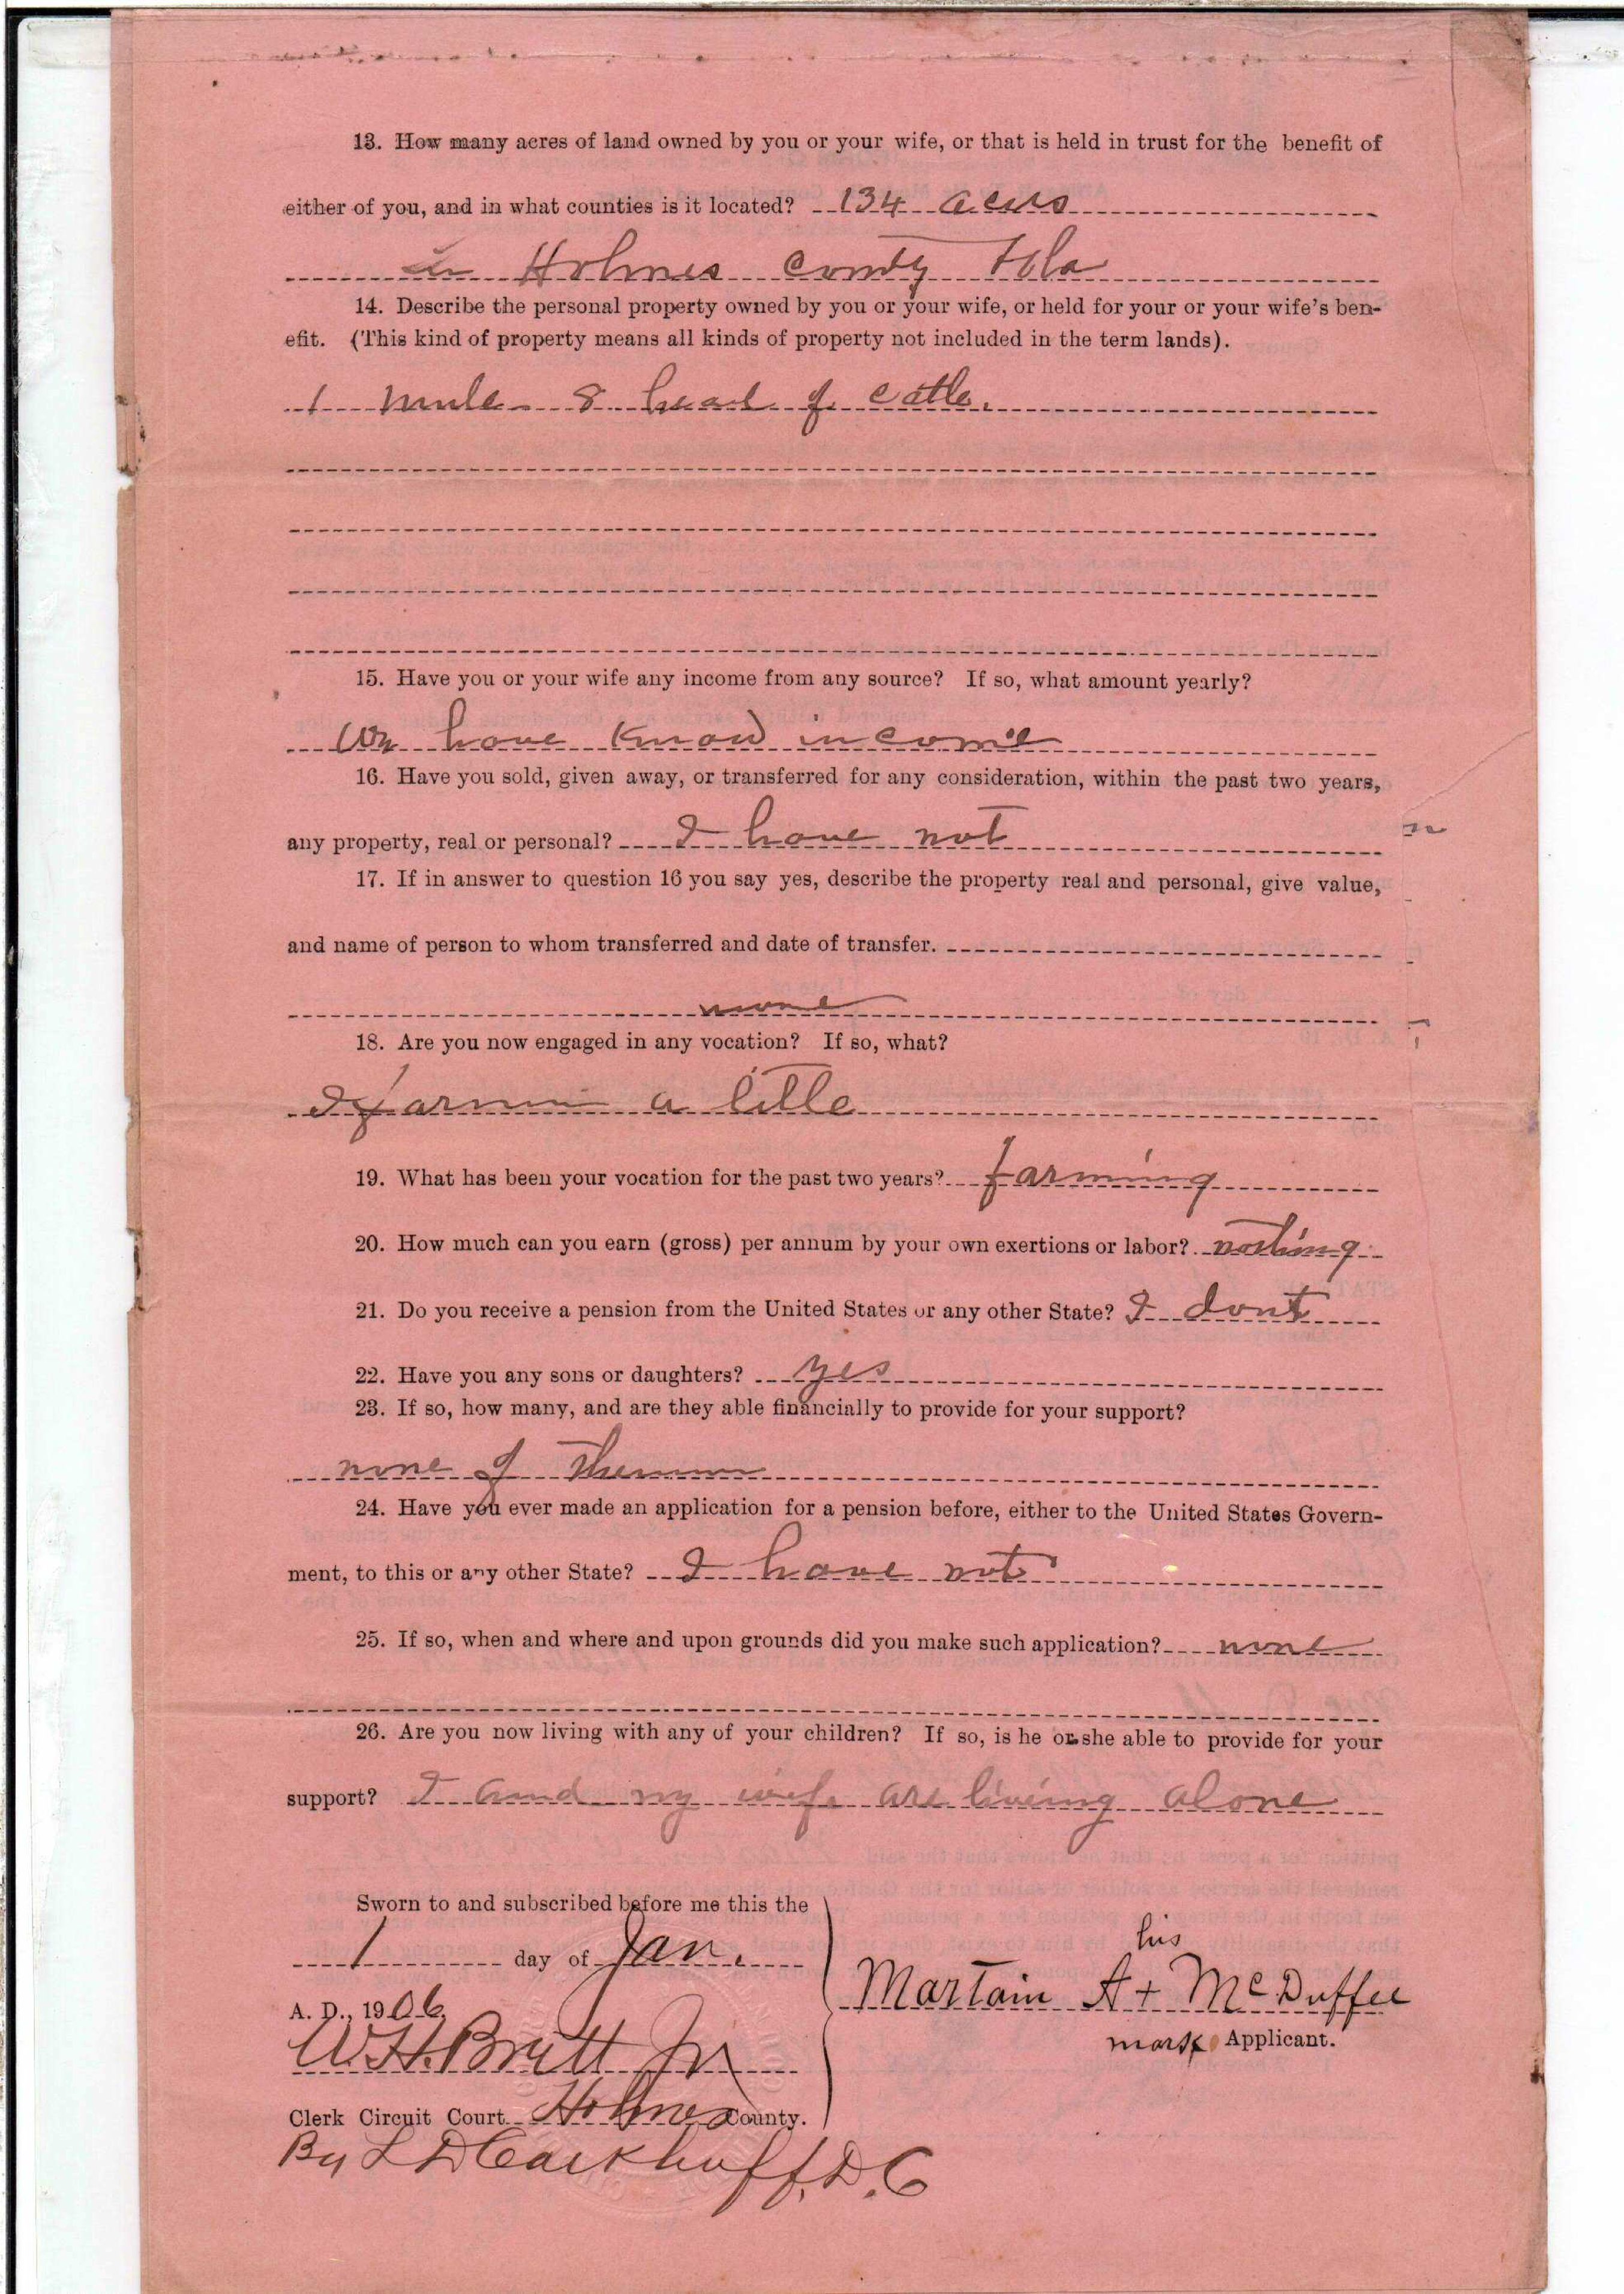 13. How many acres of land owned by you or your wife, or that is held in trust for the benefit of
either of you, and in what counties is it located? 134 acers
in Holmes county Fla
14. Describe the personal property owned by you or your wife, or held for your or your wife's ben-
efit. (This kind of property means all kinds of property not included in the term lands).
1 mule 8 head of cattle.
15. Have you or your wife any income from any source? If so, what amount yearly?
We have know income
16. Have you sold, given away, or transferred for any consideration, within the past two years,
any property, real or personal? I have not
17. If in answer to question 16 you say yes, describe the property real and personal, give value,
and name of person to whom transferred and date of transfer.
none
18. Are you now engaged in any vocation? If so, what?
I farm a little
19. What has been your vocation for the past two years? farming
20. How much can you earn (gross) per annum by your own exertions or labor? nothing
21. Do you receive a pension from the United States or any other State? I dont
22. Have you any sons or daughters? yes
23. If so, how many, and are they able financially to provide for your support?
none of them
24. Have you ever made an application for a pension before, either to the United States Govern-
ment, to this or any other State? I have not
25. If so, when and where and upon grounds did you make such application? none
26. Are you now living with any of your children? If so, is he or she able to provide for your
support? I and my wife are living alone
Sworn to and subscribed before me this the
1 day of Jan.
A. D., 1906
W.H. Britt Jr
Clerk Circuit Court Holmes County.
By L D D.C
his
Martain A + McDuffee
mark Applicant.